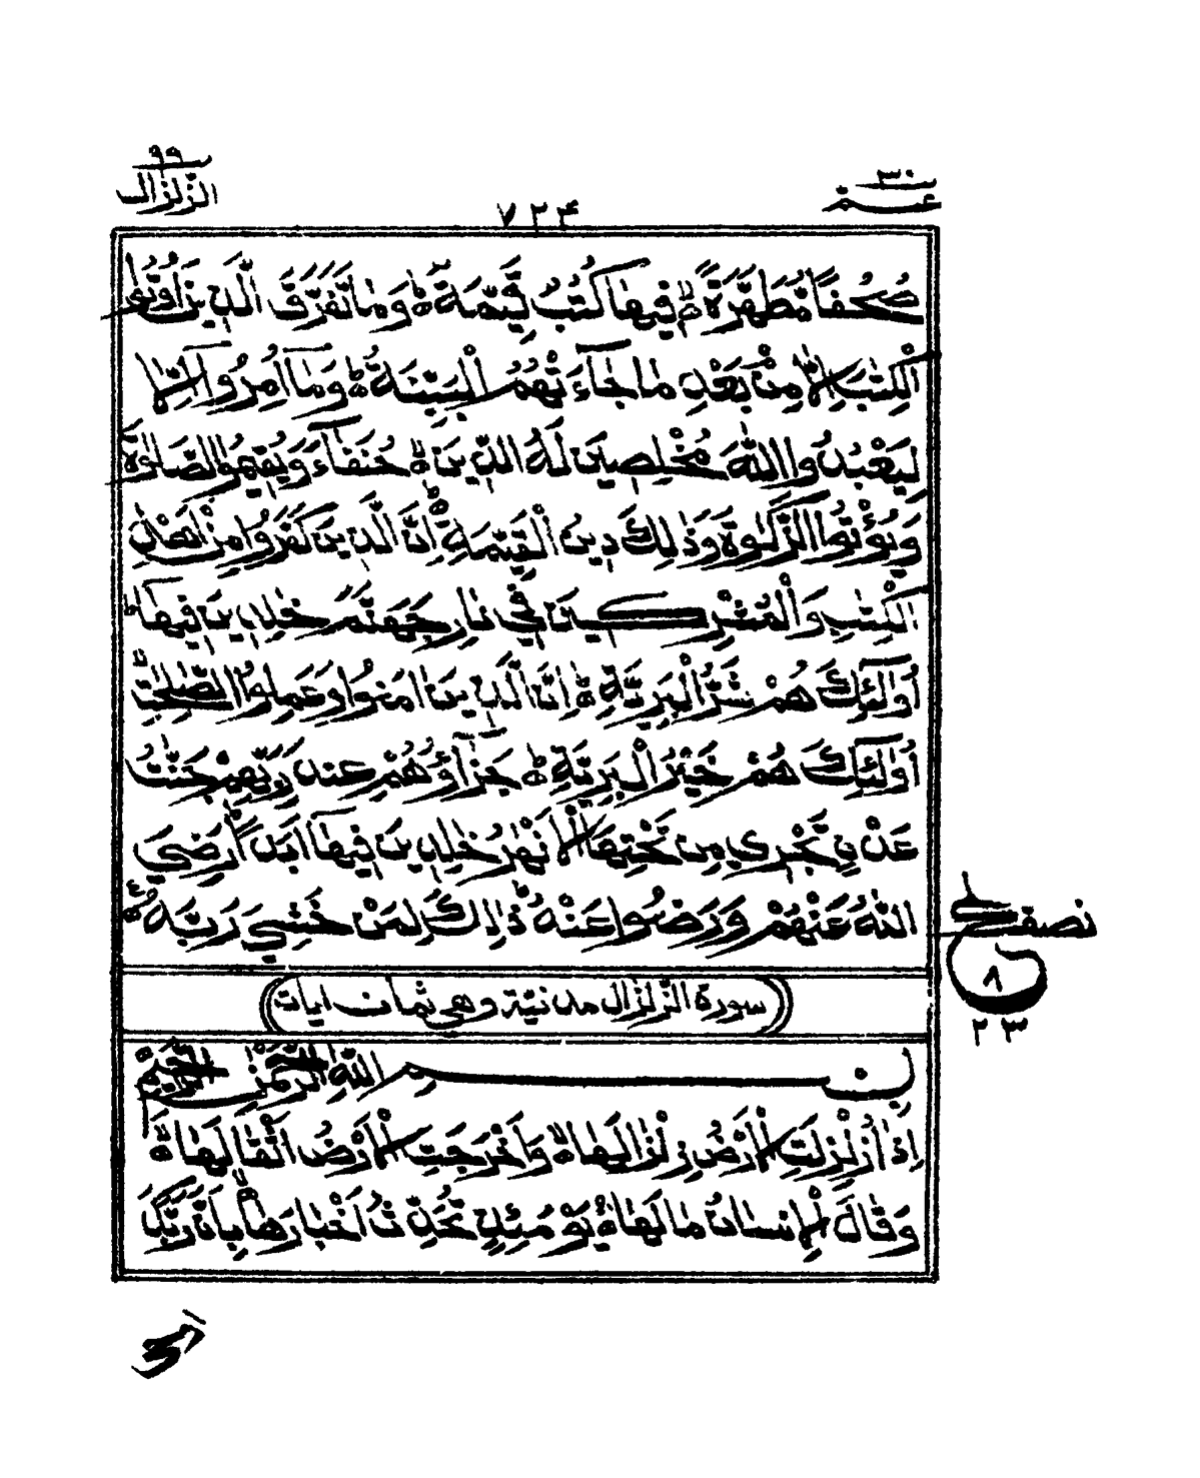 ۳۰
عمّ
۷۲۴
۹۹
الزّلزال
صُحُفًا مُّطَهَّرَةً ۙ فِيهَا كُتُبٌ قَيِّمَةٌ ۗ وَمَا تَفَرَّقَ الَّذِينَ اُوتُوا
الْكِتٰبَ اِلَّا مِنْۢ بَعْدِ مَا جَآءَتْهُمُ الْبَيِّنَةُ ۗ وَمَآ اُمِرُوٓا اِلَّا
لِيَعْبُدُوا اللّٰهَ مُخْلِصِينَ لَهُ الدِّينَ ۙ حُنَفَآءَ وَيُقِيمُوا الصَّلٰوةَ
وَيُؤْتُوا الزَّكٰوةَ وَذٰلِكَ دِينُ الْقَيِّمَةِ ۗ اِنَّ الَّذِينَ كَفَرُوا مِنْ اَهْلِ
الْكِتٰبِ وَالْمُشْرِكِينَ فِي نَارِ جَهَنَّمَ خٰلِدِينَ فِيهَا ۗ
اُولٰٓئِكَ هُمْ شَرُّ الْبَرِيَّةِ ۗ اِنَّ الَّذِينَ اٰمَنُوا وَعَمِلُوا الصّٰلِحٰتِ ۙ
اُولٰٓئِكَ هُمْ خَيْرُ الْبَرِيَّةِ ۗ جَزَآؤُهُمْ عِندَ رَبِّهِمْ جَنّٰتُ
عَدْنٍ تَجْرِي مِن تَحْتِهَا الْاَنْهٰرُ خٰلِدِينَ فِيهَآ اَبَدًا ۗ رَضِيَ
اللّٰهُ عَنْهُمْ وَرَضُوا عَنْهُ ۗ ذٰلِكَ لِمَنْ خَشِيَ رَبَّهُ ۟
نصف
ع
۸
۲۳
سورة الزّلزال مدنيّة وهي ثمان ايات
بِسْمِ اللّٰهِ الرَّحْمٰنِ الرَّحِيمِ
اِذَا زُلْزِلَتِ الْاَرْضُ زِلْزَالَهَا ۙ وَاَخْرَجَتِ الْاَرْضُ اَثْقَالَهَا ۙ
وَقَالَ الْاِنسَانُ مَا لَهَا ۚ يَوْمَئِذٍ تُحَدِّثُ اَخْبَارَهَا ۙ بِاَنَّ رَبَّكَ